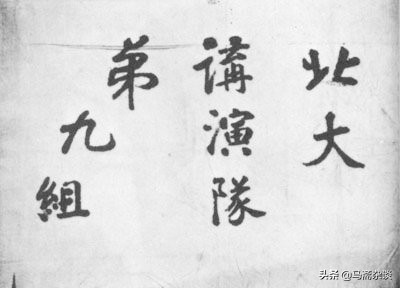 北大
講演隊
第九組
头条@马斋杂谈